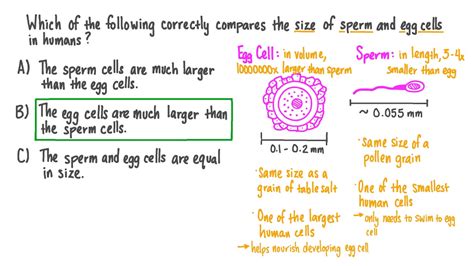 Which of the following correctly compares the size of sperm and egg cells
in humans?
A) The sperm cells are much larger
than the egg cells.
B) The egg cells are much larger than
the sperm cells.
C) The sperm and egg cells are equal
in size.
Egg Cell: in volume,
10000000x larger than sperm
0.1 - 0.2 mm
· Same size as a
grain of table salt
· One of the largest
human cells
→ helps nourish developing egg cell
Sperm: in length, 3-4x
smaller than egg
~ 0.055 mm
· Same size of a
pollen grain
· One of the smallest
human cells
→ only needs to swim to egg
cell